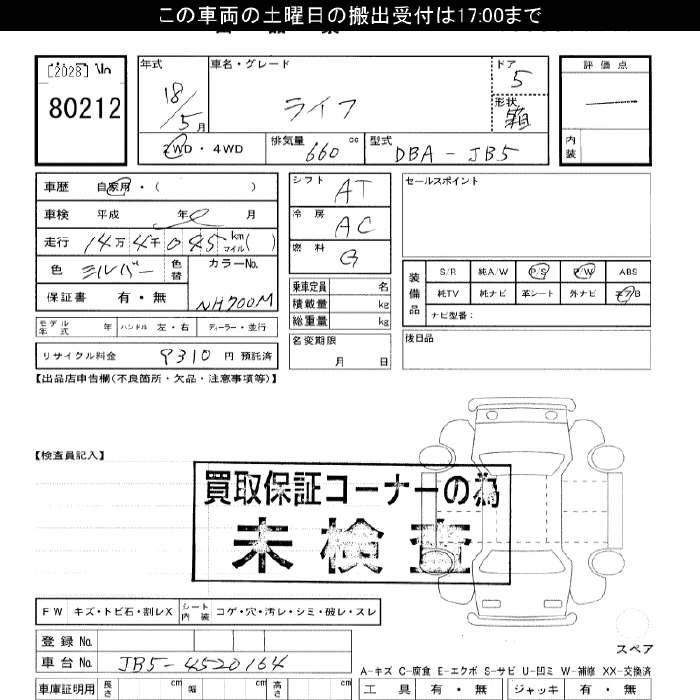 この車両の土曜日の搬出受付は17:00まで
[2028] No
80212
年式
18/5月
車名・グレード
ライフ
ドア
5
形状
箱
評価点
内装
2WD・4WD
排気量 660 cc
型式 DBA-JB5
車歴 自家用・( )
車検 平成 年 月
走行 14万4千045 km マイル( )
色 シルバー 色替
カラーNo.
NH700M
保証書 有・無
シフト AT
冷房 AC
燃料 G
乗車定員 名
積載量 kg
総重量 kg
名変期限
月 日
セールスポイント
装備品
S/R 純A/W P/S P/W ABS
純TV 純ナビ 革シート 外ナビ エアB
ナビ型番:
後日品
モデル年式 年 ハンドル 左・右 ディーラー・並行
リサイクル料金 9310 円 預託済
【出品店申告欄(不良箇所・欠品・注意事項等)】
【検査員記入】
買取保証コーナーの為
未検査
FW キズ・トビ石・割レX シート内装 コゲ・穴・汚レ・シミ・破レ・スレ
登録No
車台No JB5-4520164
スペア
A-キズ C-腐食 E-エクボ S-サビ U-凹ミ W-補修 XX-交換済
車庫証明用 長さ cm 幅 cm 高さ cm
工具 有・無 ジャッキ 有・無